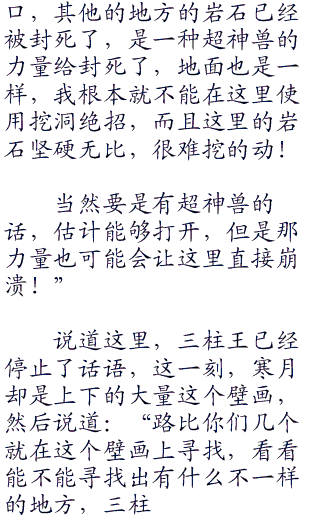 口，其他的地方的岩石已经
被封死了，是一种超神兽的
力量给封死了，地面也是一
样，我根本就不能在这里使
用挖洞绝招，而且这里的岩
石坚硬无比，很难挖的动！
当然要是有超神兽的
话，估计能够打开，但是那
力量也可能会让这里直接崩
溃！”
说道这里，三柱王已经
停止了话语，这一刻，寒月
却是上下的大量这个壁画，
然后说道：“路比你们几个
就在这个壁画上寻找，看看
能不能寻找出有什么不一样
的地方，三柱